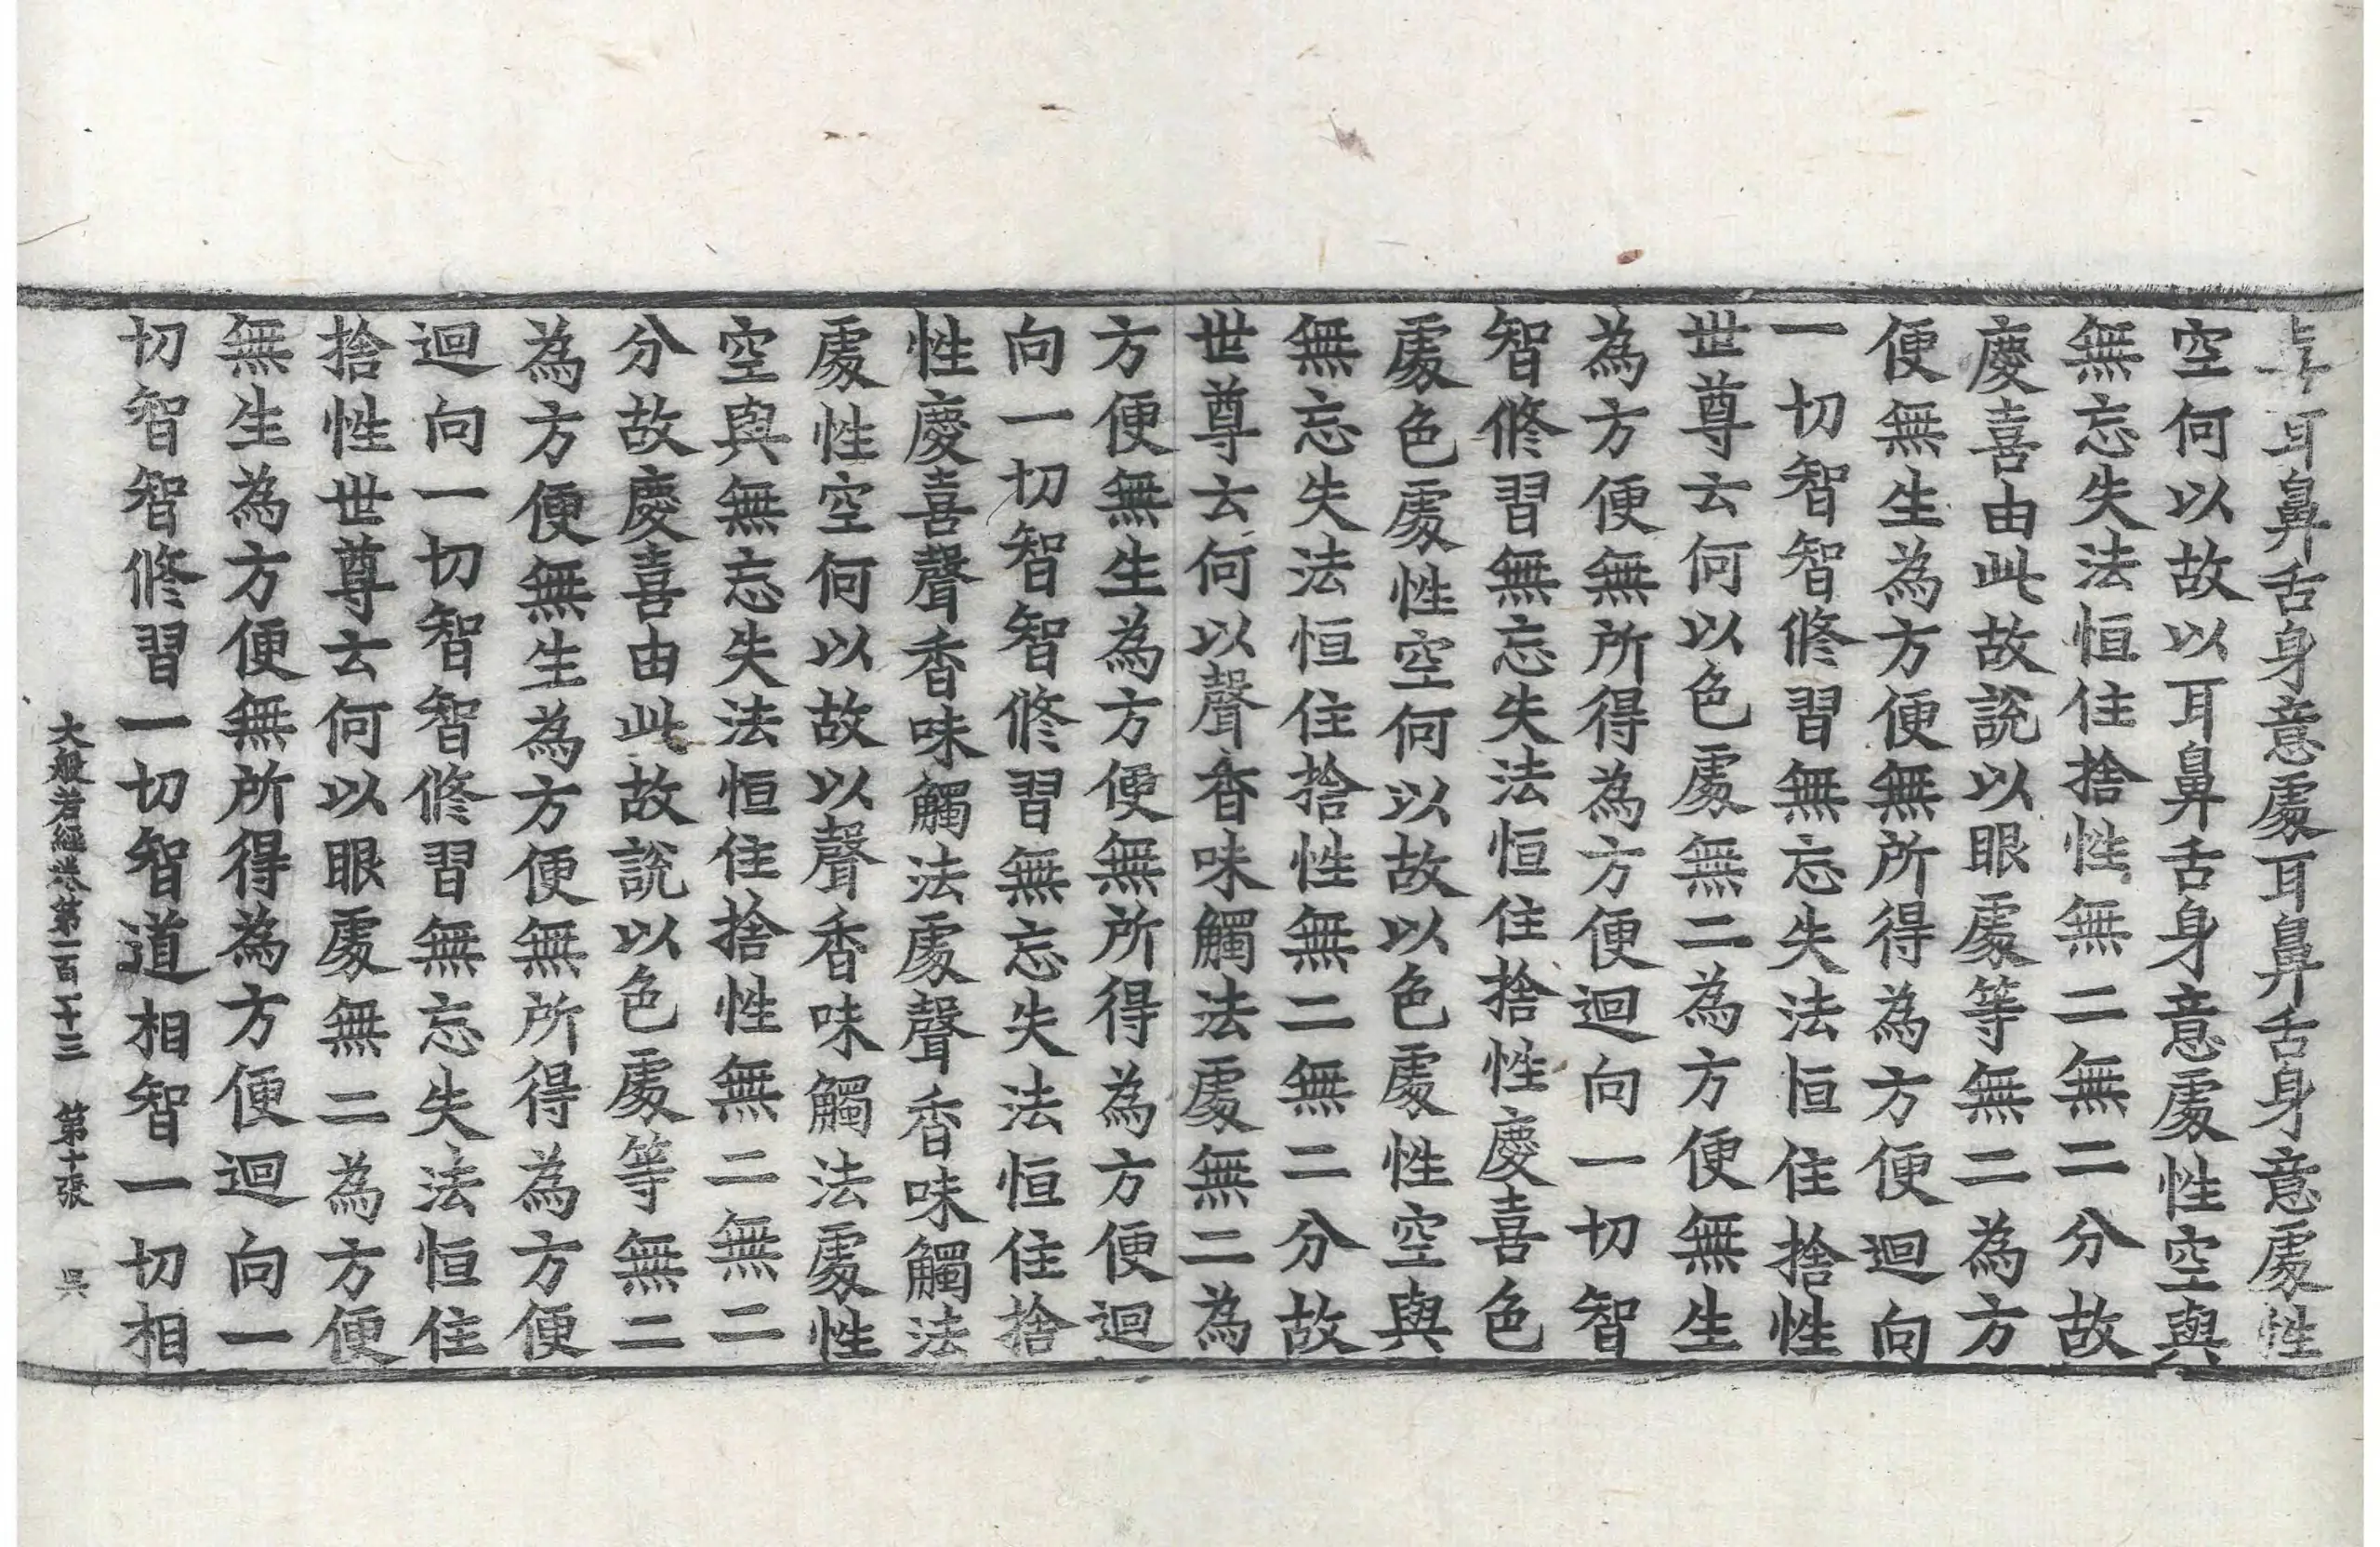 耳鼻舌身意處耳鼻舌身意處性
空何以故以耳鼻舌身意處性空與
無忘失法恒住捨性無二無二分故
慶喜由此故說以眼處等無二為方
便無生為方便無所得為方便迴向
一切智智修習無忘失法恒住捨性
世尊云何以色處無二為方便無生
為方便無所得為方便迴向一切智
智修習無忘失法恒住捨性慶喜色
處色處性空何以故以色處性空與
無忘失法恒住捨性無二無二分故
世尊云何以聲香味觸法處無二為
方便無生為方便無所得為方便迴
向一切智智修習無忘失法恒住捨
性慶喜聲香味觸法處聲香味觸法
處性空何以故以聲香味觸法處性
空與無忘失法恒住捨性無二無二
分故慶喜由此故說以色處等無二
為方便無生為方便無所得為方便
迴向一切智智修習無忘失法恒住
捨性世尊云何以眼處無二為方便
無生為方便無所得為方便迴向一
切智智修習一切智道相智一切相
大般若經卷第一百一十三 第十張 昃